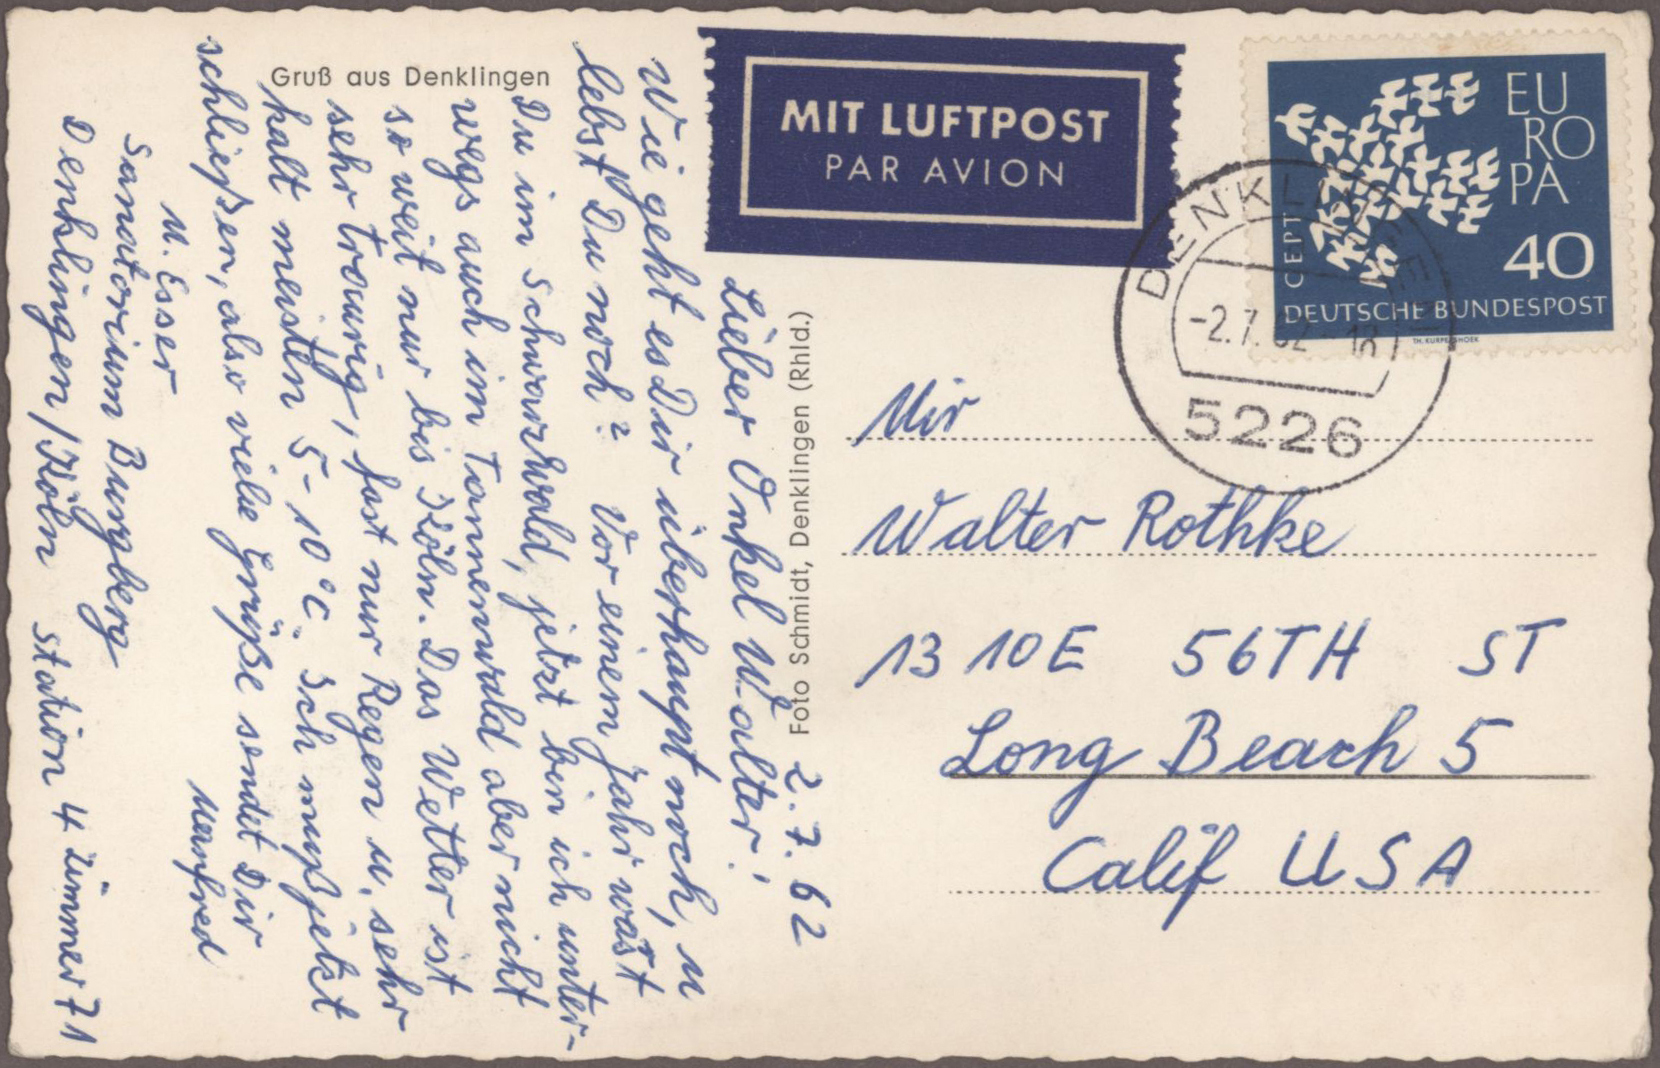 Gruß aus Denklingen
MIT LUFTPOST
PAR AVION
EU
RO
PA
CEPT
40
DEUTSCHE BUNDESPOST
DENKLINGEN
-2.7.62 18
5226
Foto Schmidt, Denklingen (Rhld.)
2.7.62
Lieber Onkel Walter!
Wie geht es Dir überhaupt noch, u
lebst Du noch? Vor einem Jahr warst
Du im Schwarzwald, jetzt bin ich unter-
wegs auch im Tannenwald aber nicht
so weit nur bis Köln. Das Wetter ist
sehr traurig, fast nur Regen u. sehr
kalt meisten 5-10°C. Ich muß jetzt
schließen, also viele Grüße sendet Dir
Manfred
M. Esser
Sanatorium Burgberg
Denklingen/Köln Station 4 Zimmer 71
Mir
Walter Rothke
1310E 56TH ST
Long Beach 5
Calif USA